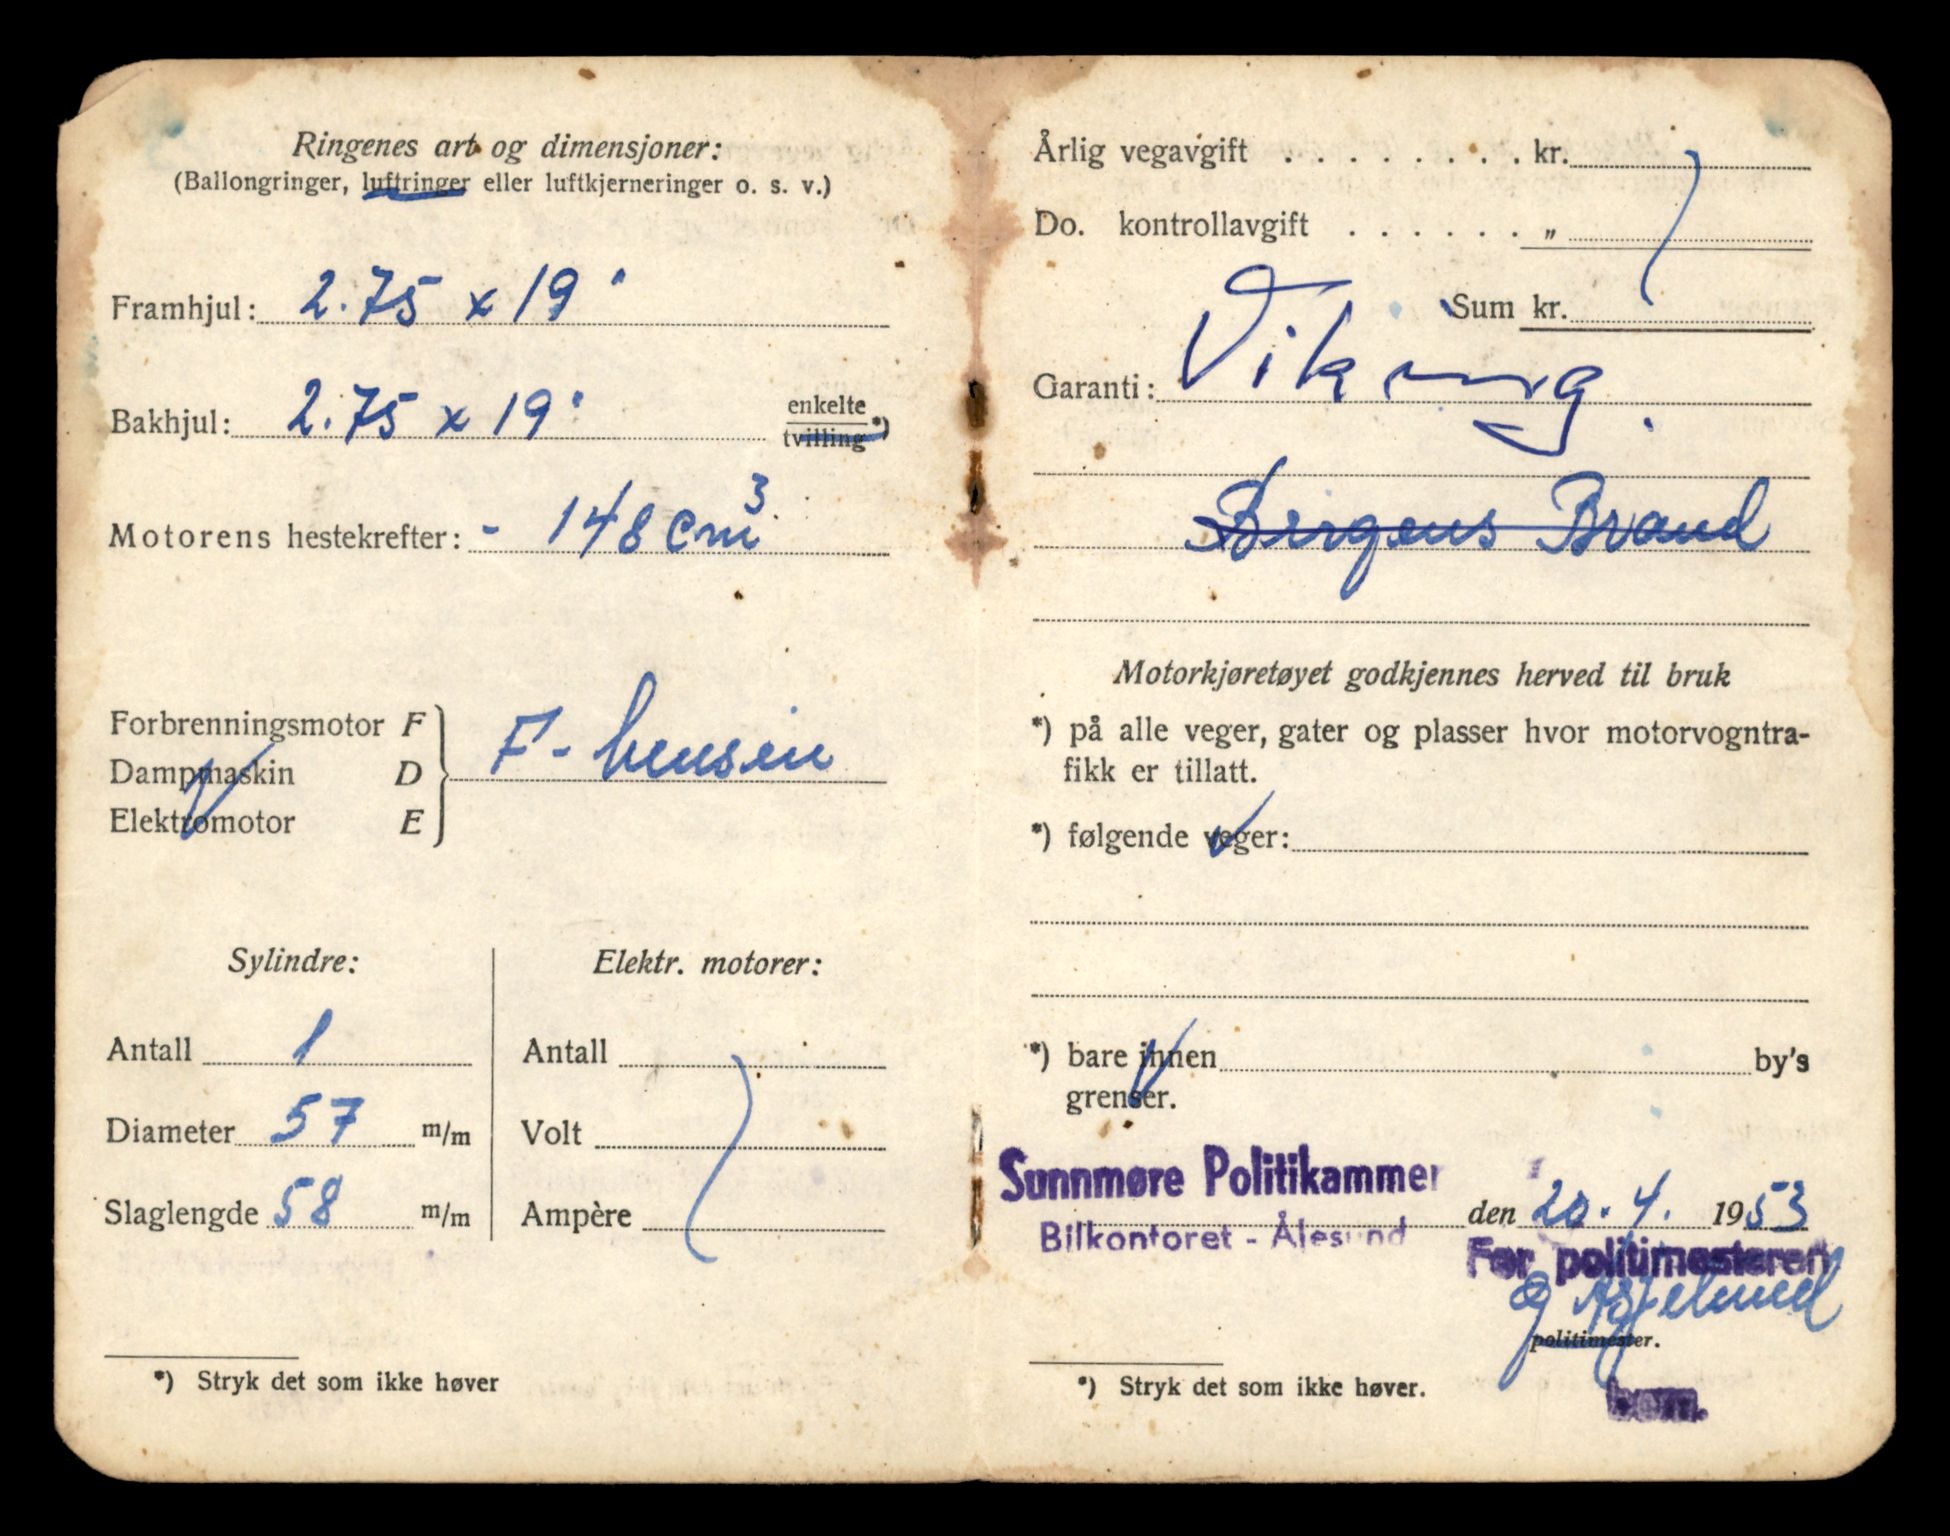 Ringenes art og dimensjoner:
(Ballongringer, luftringer eller luftkjerneringer o. s. v.)
Framhjul: 2.75 x 19"
Bakhjul: 2.75 x 19" enkelte
tvilling *)
Motorens hestekrefter: - 148 cm³
Forbrenningsmotor F
Dampmaskin D F - bensin
Elektromotor E
Sylindre:
Antall 1
Diameter 57 m/m
Slaglengde 58 m/m
Elektr. motorer:
Antall
Volt
Ampère
*) Stryk det som ikke høver
Årlig vegavgift . . . . . . . . kr.
Do. kontrollavgift . . . . . . „
Sum kr.
Garanti: Viking.
Bergens Brand
Motorkjøretøyet godkjennes herved til bruk
*) på alle veger, gater og plasser hvor motorvogntra-
fikk er tillatt.
*) følgende veger:
*) bare innen by's
grenser.
Sunnmøre Politikammer
Bilkontoret - Ålesund
den 20. 4. 1953
For politimesteren
politimester.
bem.
*) Stryk det som ikke høver.